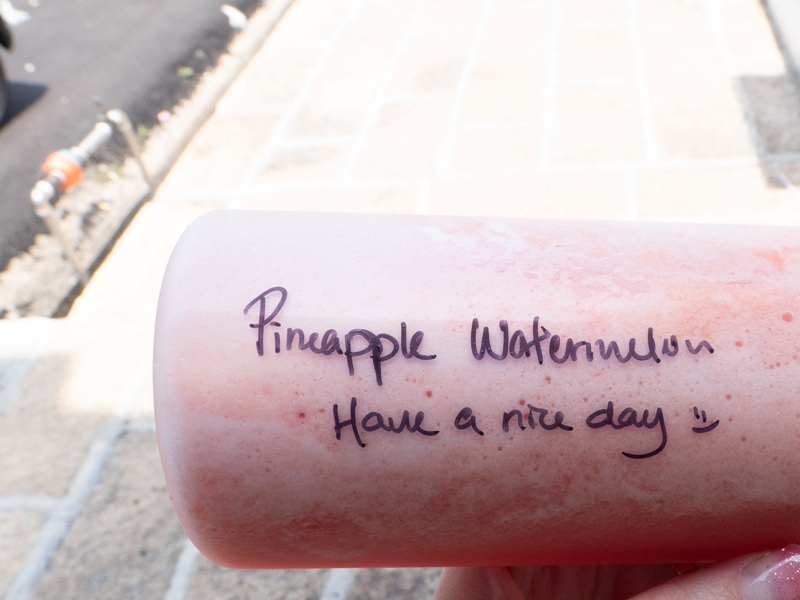 Pineapple Watermelon
Have a nice day :)